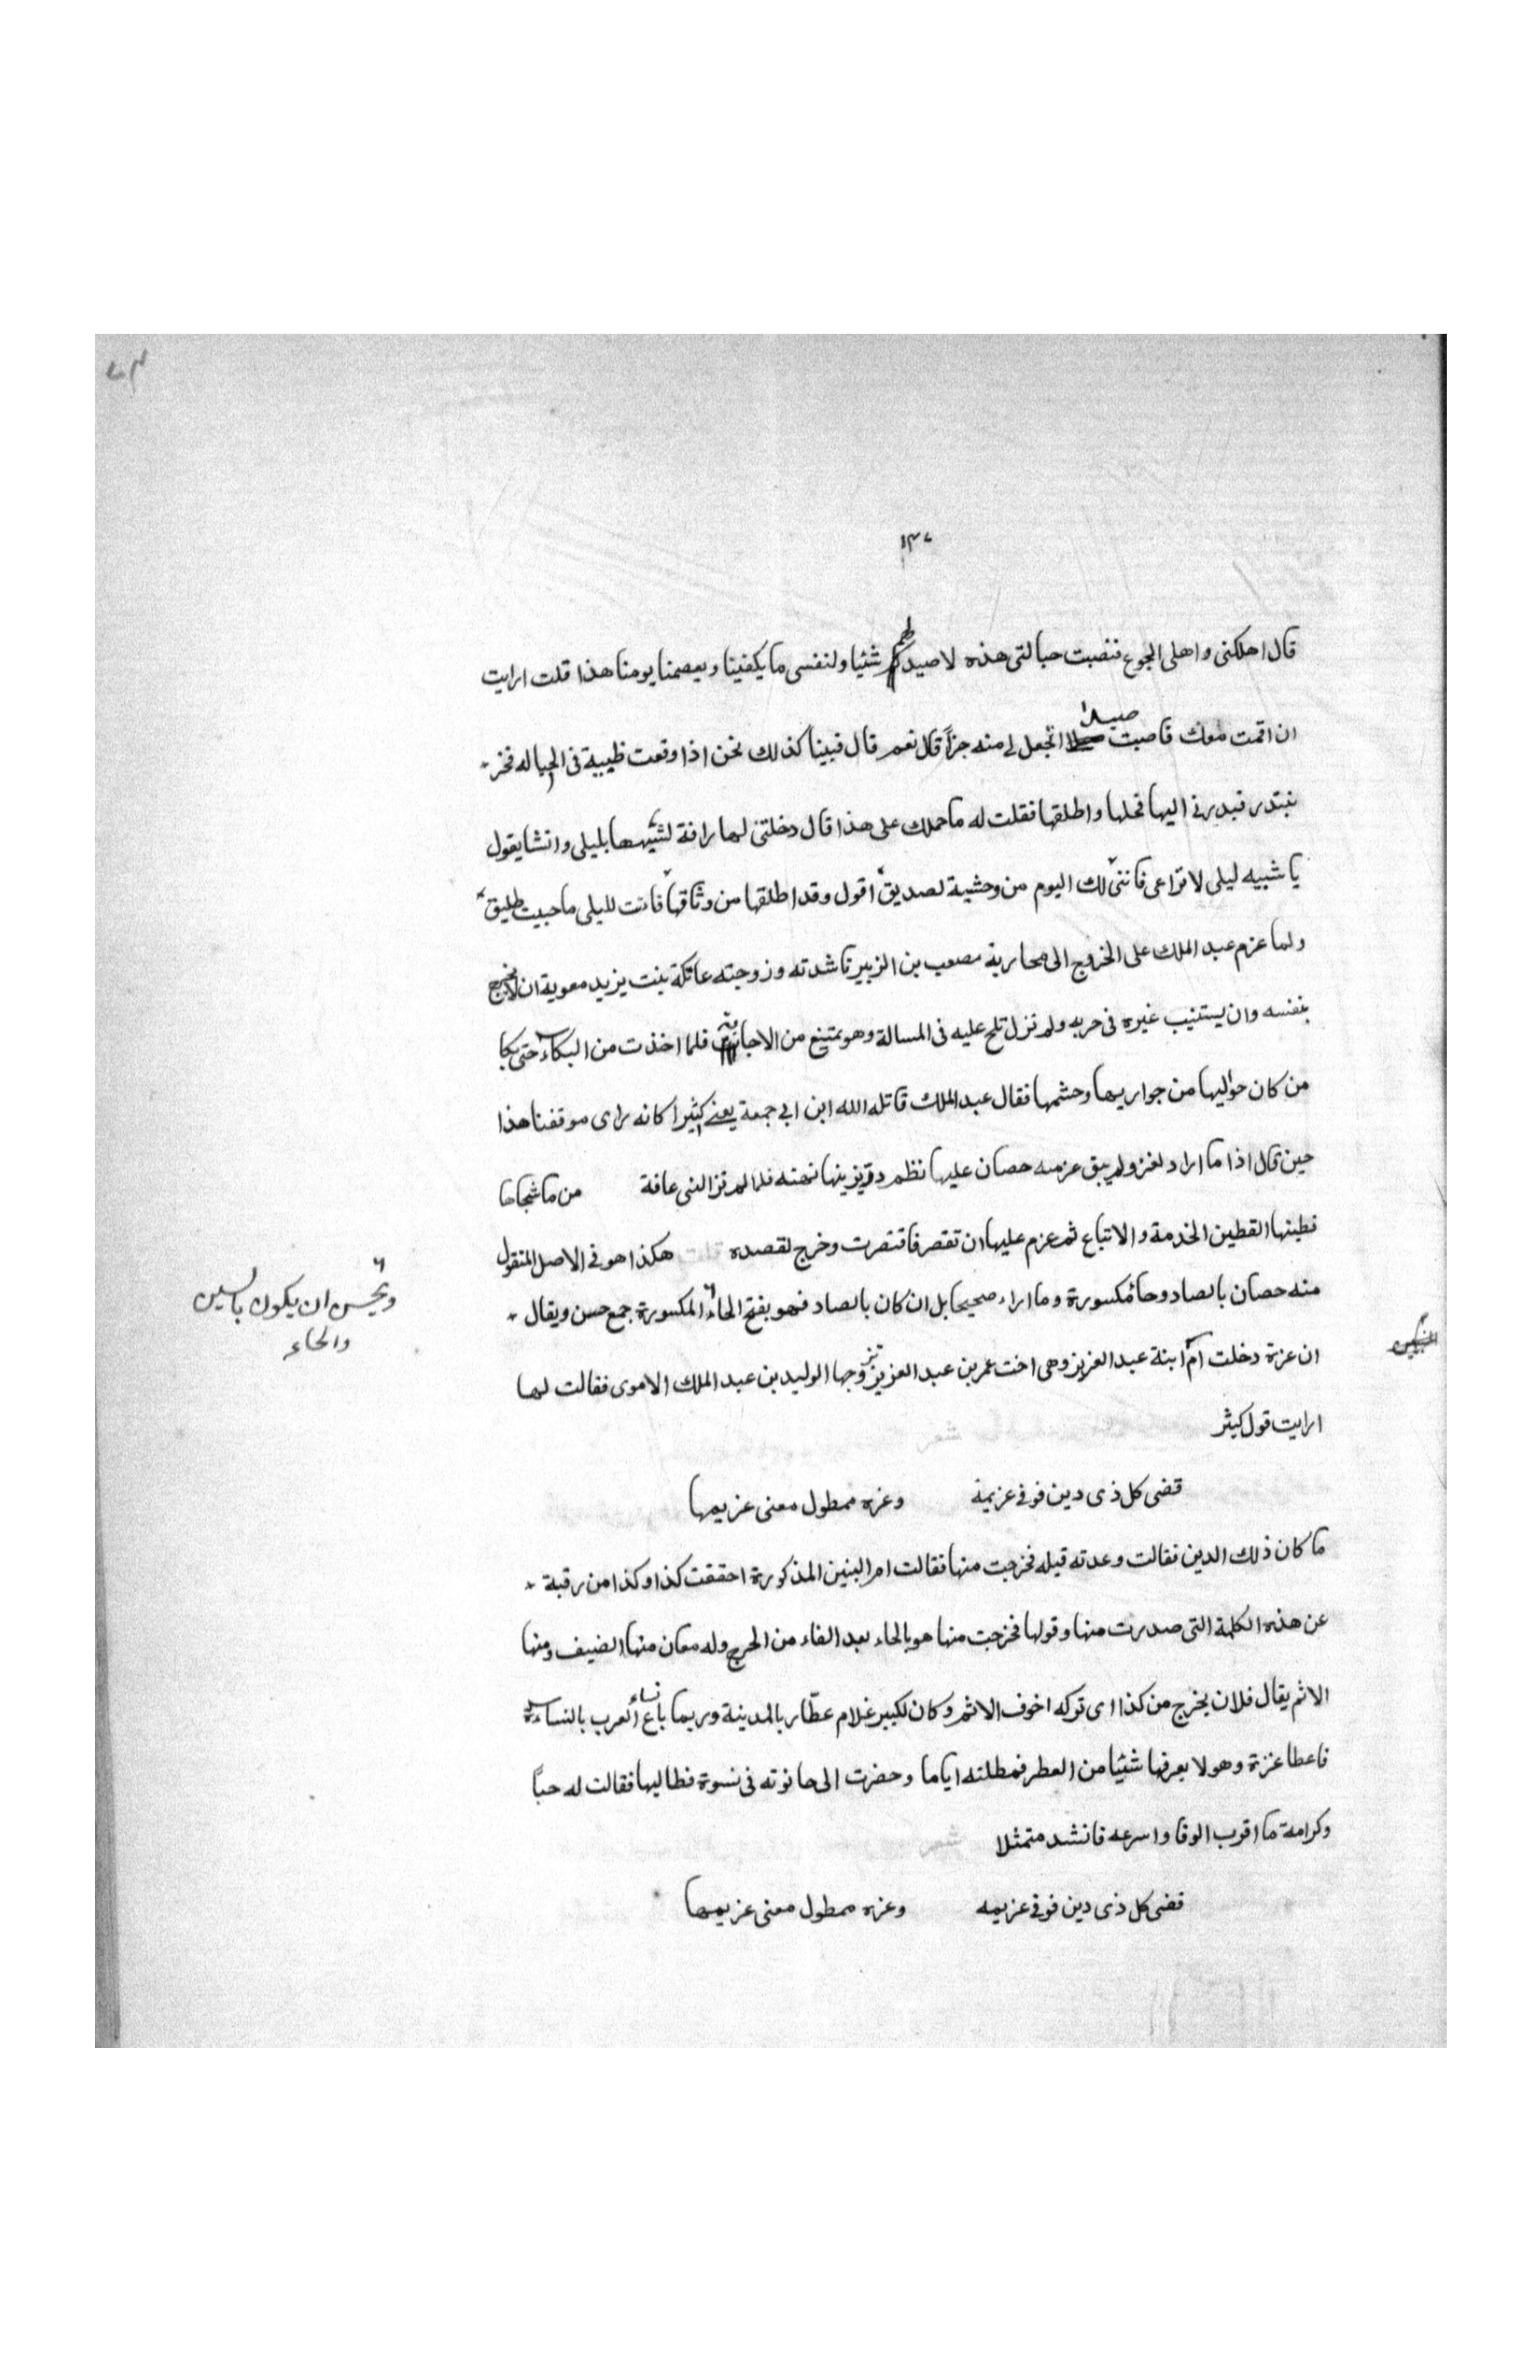 ١٣٧
قال اهلكنى واهلى الجوع فنصبت حبالتى هذه لاصيد لهم شئيا ولنفسى ما يكفينا ويعصمنا يومنا هذا قلت ارايت
ان اقمت معك فاصبت صيدا اتجعل لى منه جزأ قال نعم قال فبينا كذلك نحن اذا وقعت ظبية فى الحباله فخر
نبتدر فبدرنى اليها فحلها واطلقها فقلت له ما حملك على هذا قال دخلتنى لها رافة لشبهها بليلى وانشا يقول
يا شبيه ليلى لا تراعى فاننى لك اليوم من وحشية لصديق اقول وقد اطلقها من وثاقها فانت لليلى ما حييت طليق
ولما عزم عبد الملك على الخروج الى محاربة مصعب بن الزبير ناشدته وزوجته عاتكة بنت يزيد معوية ان لا يخرج
بنفسه وان يستنيب غيره فى حربه ولم نزل تلح عليه فى المسالة وهو يمتنع من الاجابة فلما اخذت من البكاء حتى بكا
من كان حواليها من جواريها وحشمها فقال عبد الملك قاتله الله ابن ابى جمعة يعنى كثيرا كانه راى موقفنا هذا
حين قال اذا ما اراد لغزو لم يبق عزمه حصان عليها نظم در يزينها نهته فلما لم تر النهى عاقة من ما شجاها
قطينها القطين الخدمة والاتباع ثم عزم عليها ان تقصر فاقتصرت وخرج لقصده هكذا هو فى الاصل المنقول
منه حصان بالصاد وحا مكسورة وما اراه صحيحا بل ان كان بالصاد فهو بفتح الحاء المكسورة جمع حسن ويقال
ويحسن ان يكون بالسين
والحاء
ان عزة دخلت ام ابنة عبد العزيز وهى اخت عمر بن عبد العزيز تزوجها الوليد بن عبد الملك الاموى فقالت لها
ارايت قول كيثر
قضى كل ذى دين فوفى عزيمة وعزه ممطول معنى عزيمها
ما كان ذلك الدين فقالت وعدته قبله فخرجت منها فقالت ام البنين المذكورة احققت كذا وكذا من رقبة
عن هذه الكلمة التى صدرت منها وقولها فخرجت منها هو بالحاء بعد الفاء من الحرج وله معان منها الضيف ومنها
الاثم يقال فلان يخرج من كذا اى توكه اخوف الاثم وكان لكبير غلام عطّار بالمدينة وربما باع نساء العرب بالنساءة
فاعطا عزة وهو لا يعرفها شئيا من العطر فمطلته اياما وحضرت الى حانوته فى نسوة فطالبها فقالت له حبًا
وكرامة ما اقرب الوفا واسرعه فانشد متمثلا
قضى كل ذى دين فوفى عزيمه وعزه ممطول معنى عزيمها